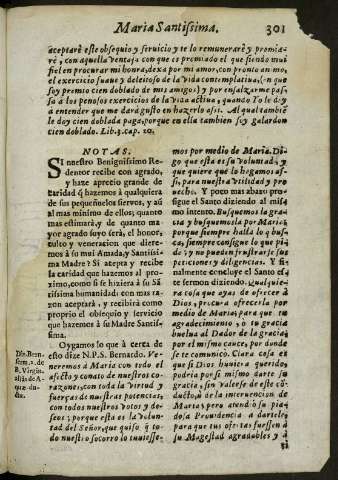 Maria Santissima.
301
aceptaré este obsequio y seruicio y te lo remuneraré y premia-
ré, con aquella ventaja con que es premiado el que siendo mui
fiel en procurar mi honra, dexa por mi amor, con pronto animo,
el exercicio suaue y deleitoso de la vida contemplatiua, (en que
soy premio cien doblado de mis amigos) y por ensalçarme pas-
sa à los penosos exercicios de la vida actiua, quando Yo le doy
à entender que me dará gusto en hazerlo assi. Al qual tambié
le doy cien doblada paga, porque en ella tambien soy galardon
cien doblado. Lib. 3. cap. 20.
NOTAS.
SI nuestro Benignissimo Re-
dentor recibe con agrado,
y haze aprecio grande de
caridad q̃ hazemos à qualquiera
de sus pequeñuelos siervos, y aũ
al mas minimo de ellos, quanto
mas estimará, y de quanto ma-
yor agrado suyo será, el honor,
culto y veneracion que diere-
mos à su mui Amada y Santissi-
ma Madre? Si acepta y recibe
la caridad que hazemos al pro-
ximo, como si se hiziera à su Sã-
tissima humanidad: con mas ra-
zon aceptará, y recibirá como
proprio el obsequio y servicio
que hazemos à su Madre Santis-
sima.
Oygamos lo que à cerca de
esto dize N.P.S. Bernardo. Ve-
neremos à Maria con todo el
afecto y conato de nuestros co-
razones, con toda la virtud y
fuerças de nuestras potencias,
con todos nuestros votos y de-
seos; porque esta es la volun-
tad del Señor, que quiso q̃ to-
do nuestro socorro lo tuuiesse-
Div. Bern.
serm. 2. de
B. Virgin.
aliàs de A-
quæ du-
ctu.
mos por medio de Maria. Di-
go que esta es su voluntad, y
que quiere que lo hagamos as-
si, para nuestra vtilidad y pro-
uecho. Y poco mas abaxo pro-
sigue el Santo diziendo al mis-
mo intento. Busquemos la gra-
cia y busquemosla por Maria:
porque siempre halla lo q̃ bus-
ca, siempre consigue lo que pi-
de: y no pueden frustrarse sus
peticiones y diligencias. Y fi-
nalmente concluye el Santo es-
te sermon diziendo. Qualquie-
ra cosa que ayas de ofrecer à
Dios, procura ofrecerla por
medio de Maria; para que tu
agradecimiento, o tu gracia
buelua al Dador de la gracia,
por el mismo cauce, por donde
se te comunicò. Clara cosa es
que si Dios huuiera querido,
podria por si mismo darte su
gracia, sin valerse de este cõ-
ducto, ù de la intervencion de
Maria; pero atendiò su pia-
dosa Prouidencia à dartela,
para que tus ofertas fuessen à
su Magestad agradables y à
ti